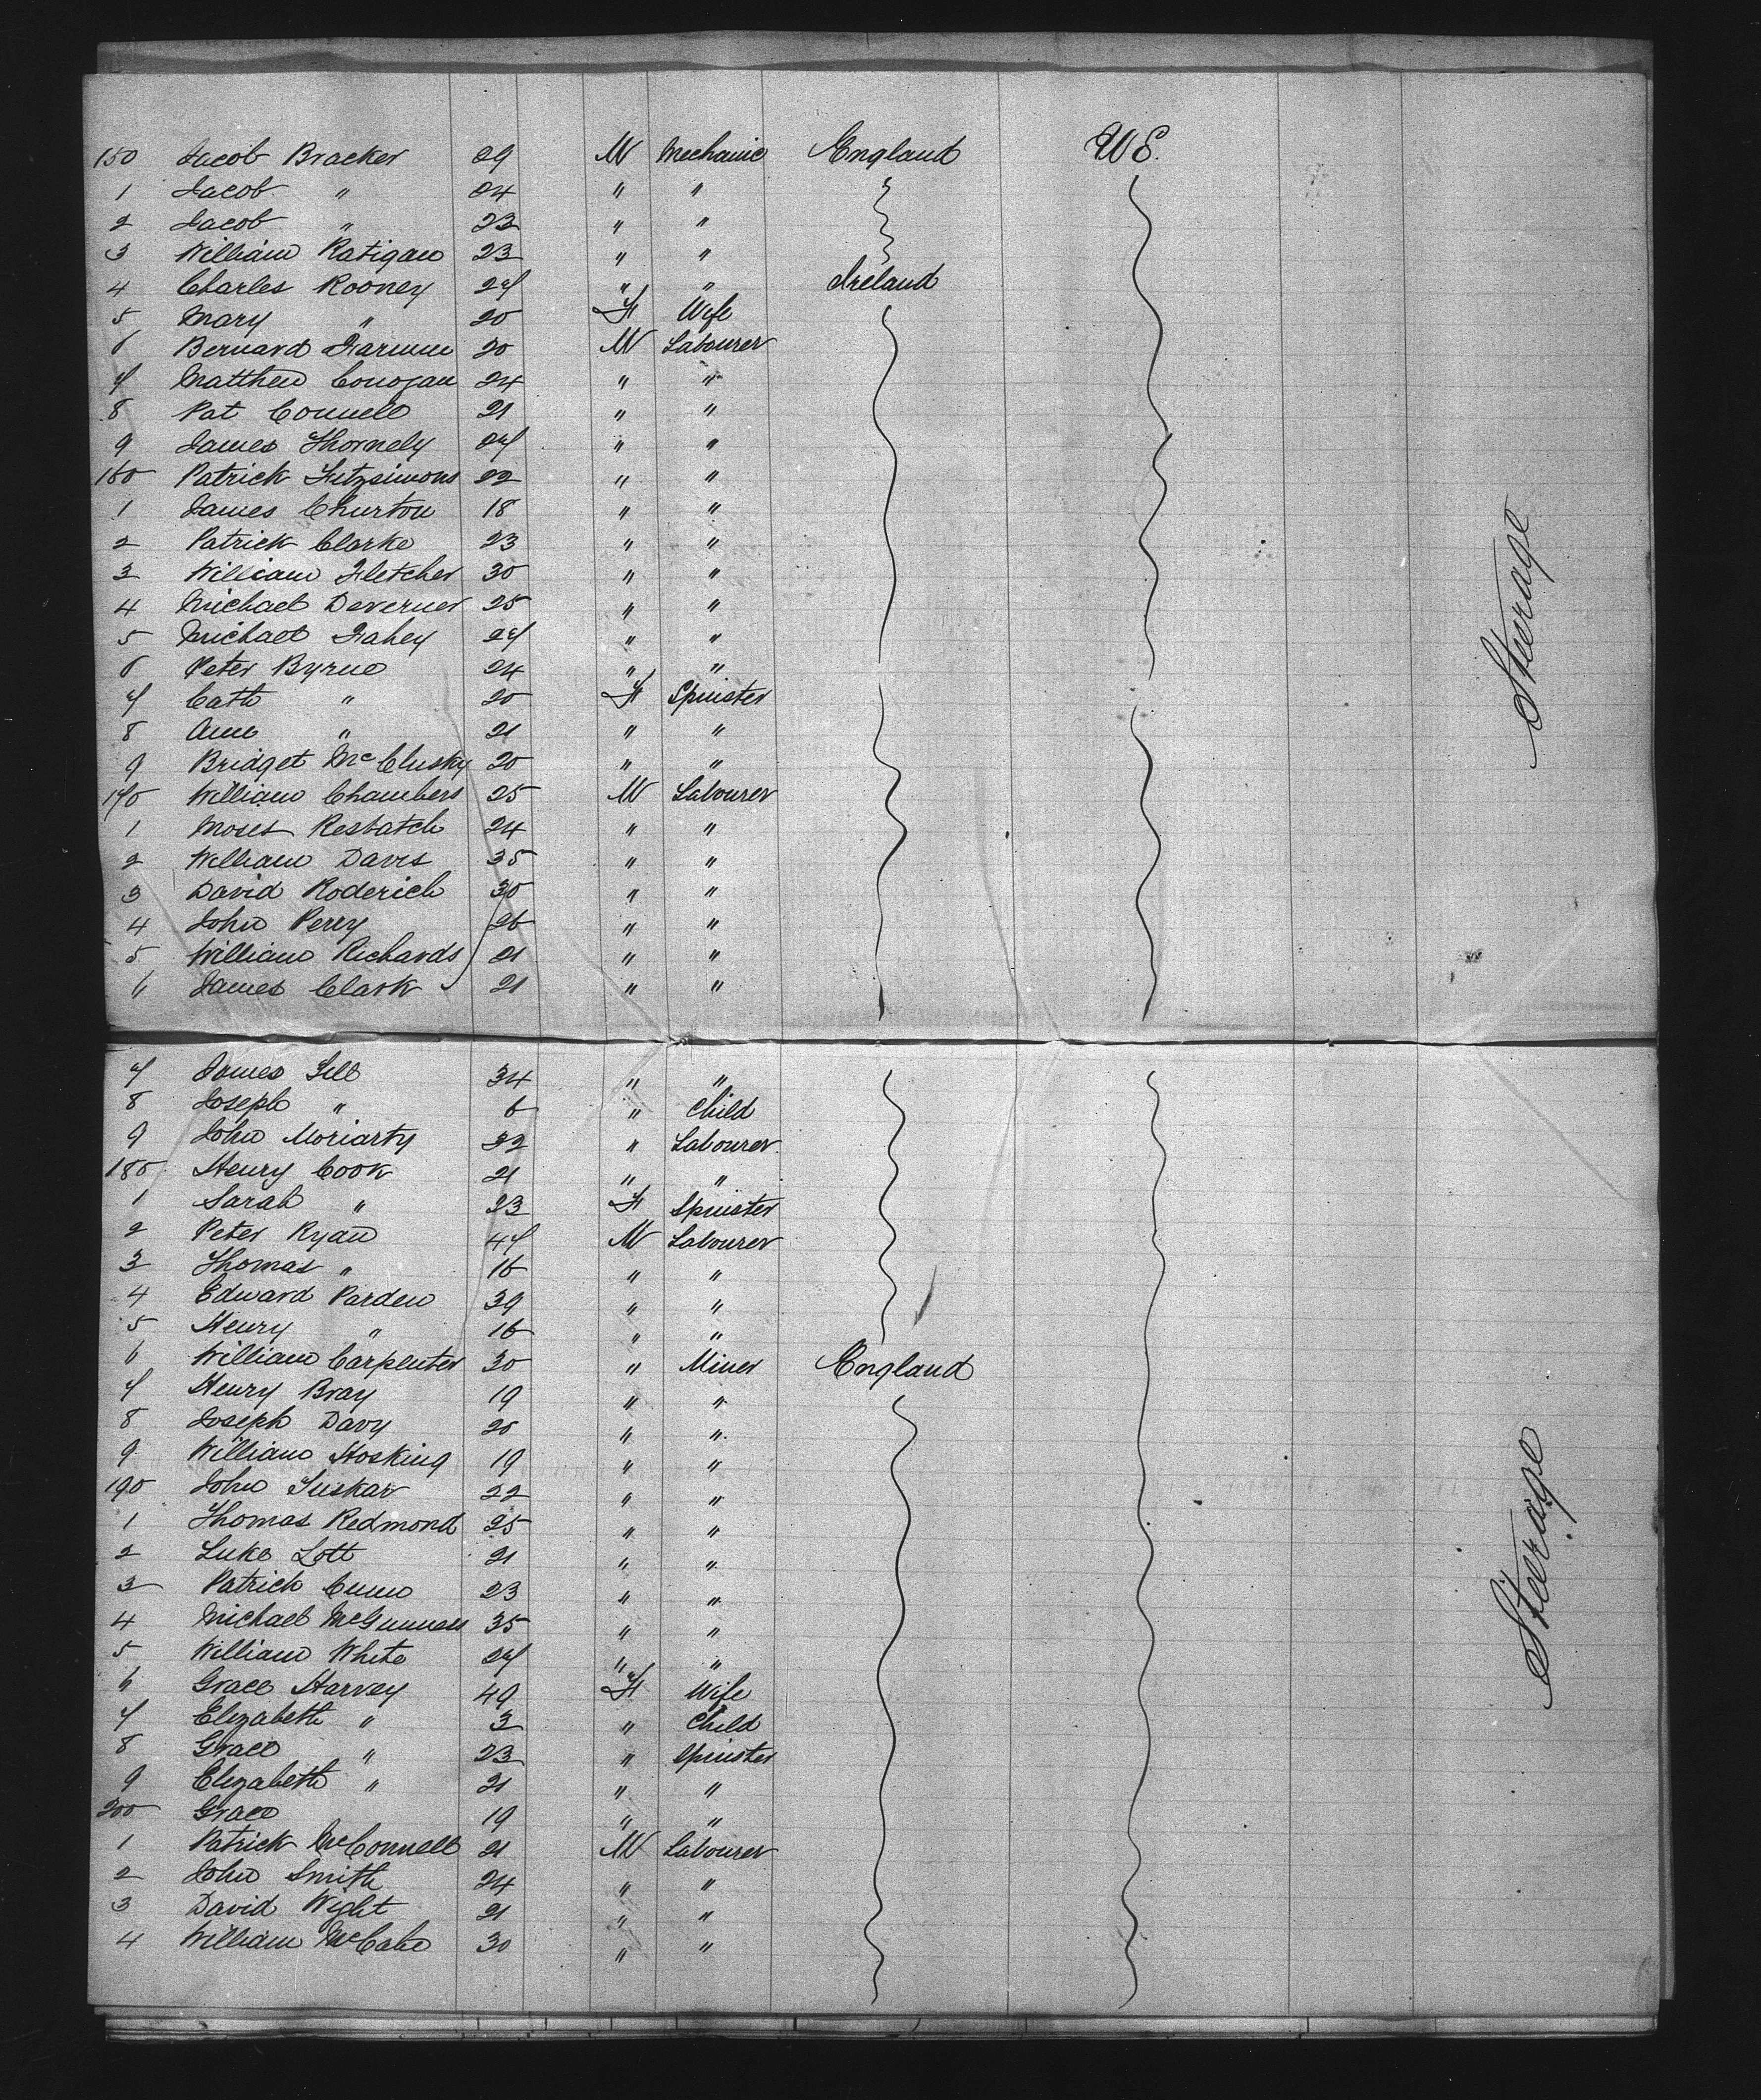 150 Jacob Bracker 29 M Mechanic England WS.
1 Jacob " 24 " "
2 Jacob " 22 " "
3 William Ratigan 23 " "
4 Charles Rooney 27 " " Ireland
5 Mary " 20 F Wife
6 Bernard 20 M Labourer
7 Matthew 24 " "
8 Pat Connell 21 " "
9 James Thornely 27 " "
160 Patrick Fitzsimons 22 " "
1 James Churton 18 " "
2 Patrick Clarke 23 " "
3 William Fletcher 30 " "
4 Michael Deverner 25 " "
5 Michael Fahey 27 " "
6 Peter Byrne 24 " "
7 Cath " 20 F Spinster
8 Ann " 21 " "
9 Bridget McClusky 20 " "
170 William Chambers 25 M Labourer
1 Moses Resbatch 24 " "
2 William Davis 35 " "
3 David Roderick 30 " "
4 John Perry 26 " "
5 William Richards 21 " "
6 James Clark 21 " "
Steerage
7 James 34 " "
8 Joseph " 6 " Child
9 John Moriarty 22 " Labourer
180 Henry Cook 21 " "
1 Sarah " 23 F Spinster
2 Peter Ryan 47 M Labourer
3 Thomas " 16 " "
4 Edward Parden 39 " "
5 Henry " 16 " "
6 William Carpenter 30 " Miner England
7 Henry Bray 19 " "
8 Joseph Davy 20 " "
9 William Hosking 19 " "
190 John 22 " "
1 Thomas Redmond 25 " "
2 Luke Lott 21 " "
3 Patrick 23 " "
4 Michael McGunness 35 " "
5 William White 27 " "
6 Grace Harvey 49 F Wife
7 Elizabeth " 3 " Child
8 Grace " 23 " Spinster
9 Elizabeth " 21 " "
200 Grace 19 " "
1 Patrick McConnell 21 M Labourer
2 John Smith 24 " "
3 David Wight 21 " "
4 William McCabe 30 " "
Steerage